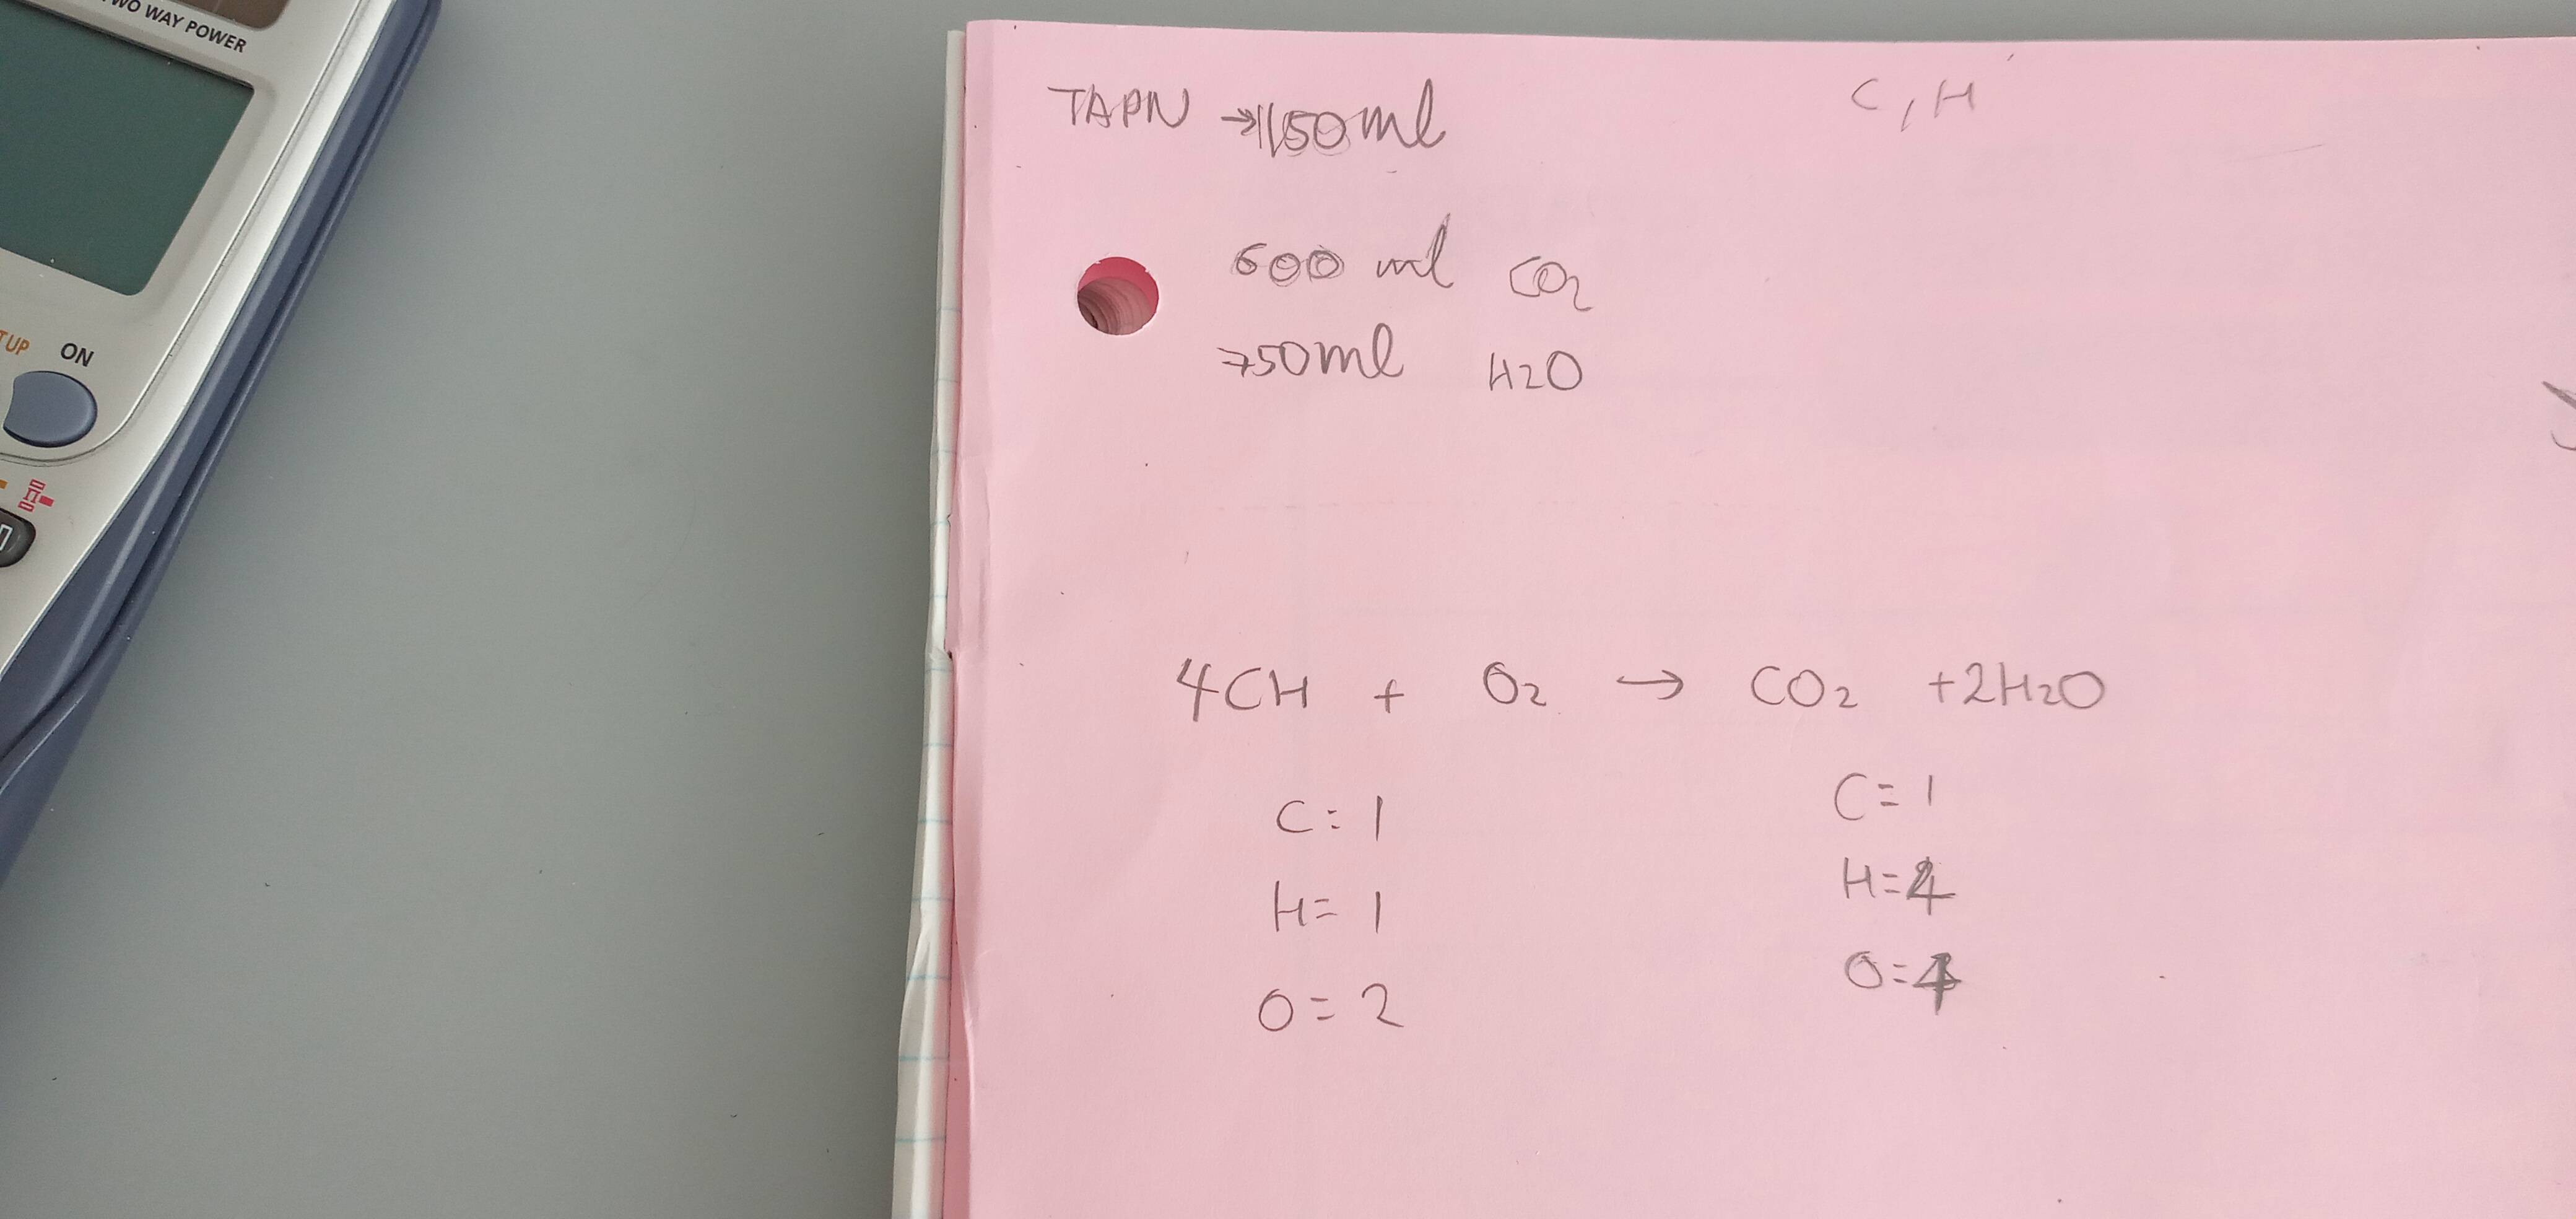 TWO WAY POWER
ON
TAPN → 150ml
C, H
600 ml CO2
750ml H2O
4CH + O2 → CO2 + 2H2O
C = 1
C = 1
H = 1
H = 4
O = 2
O = 4